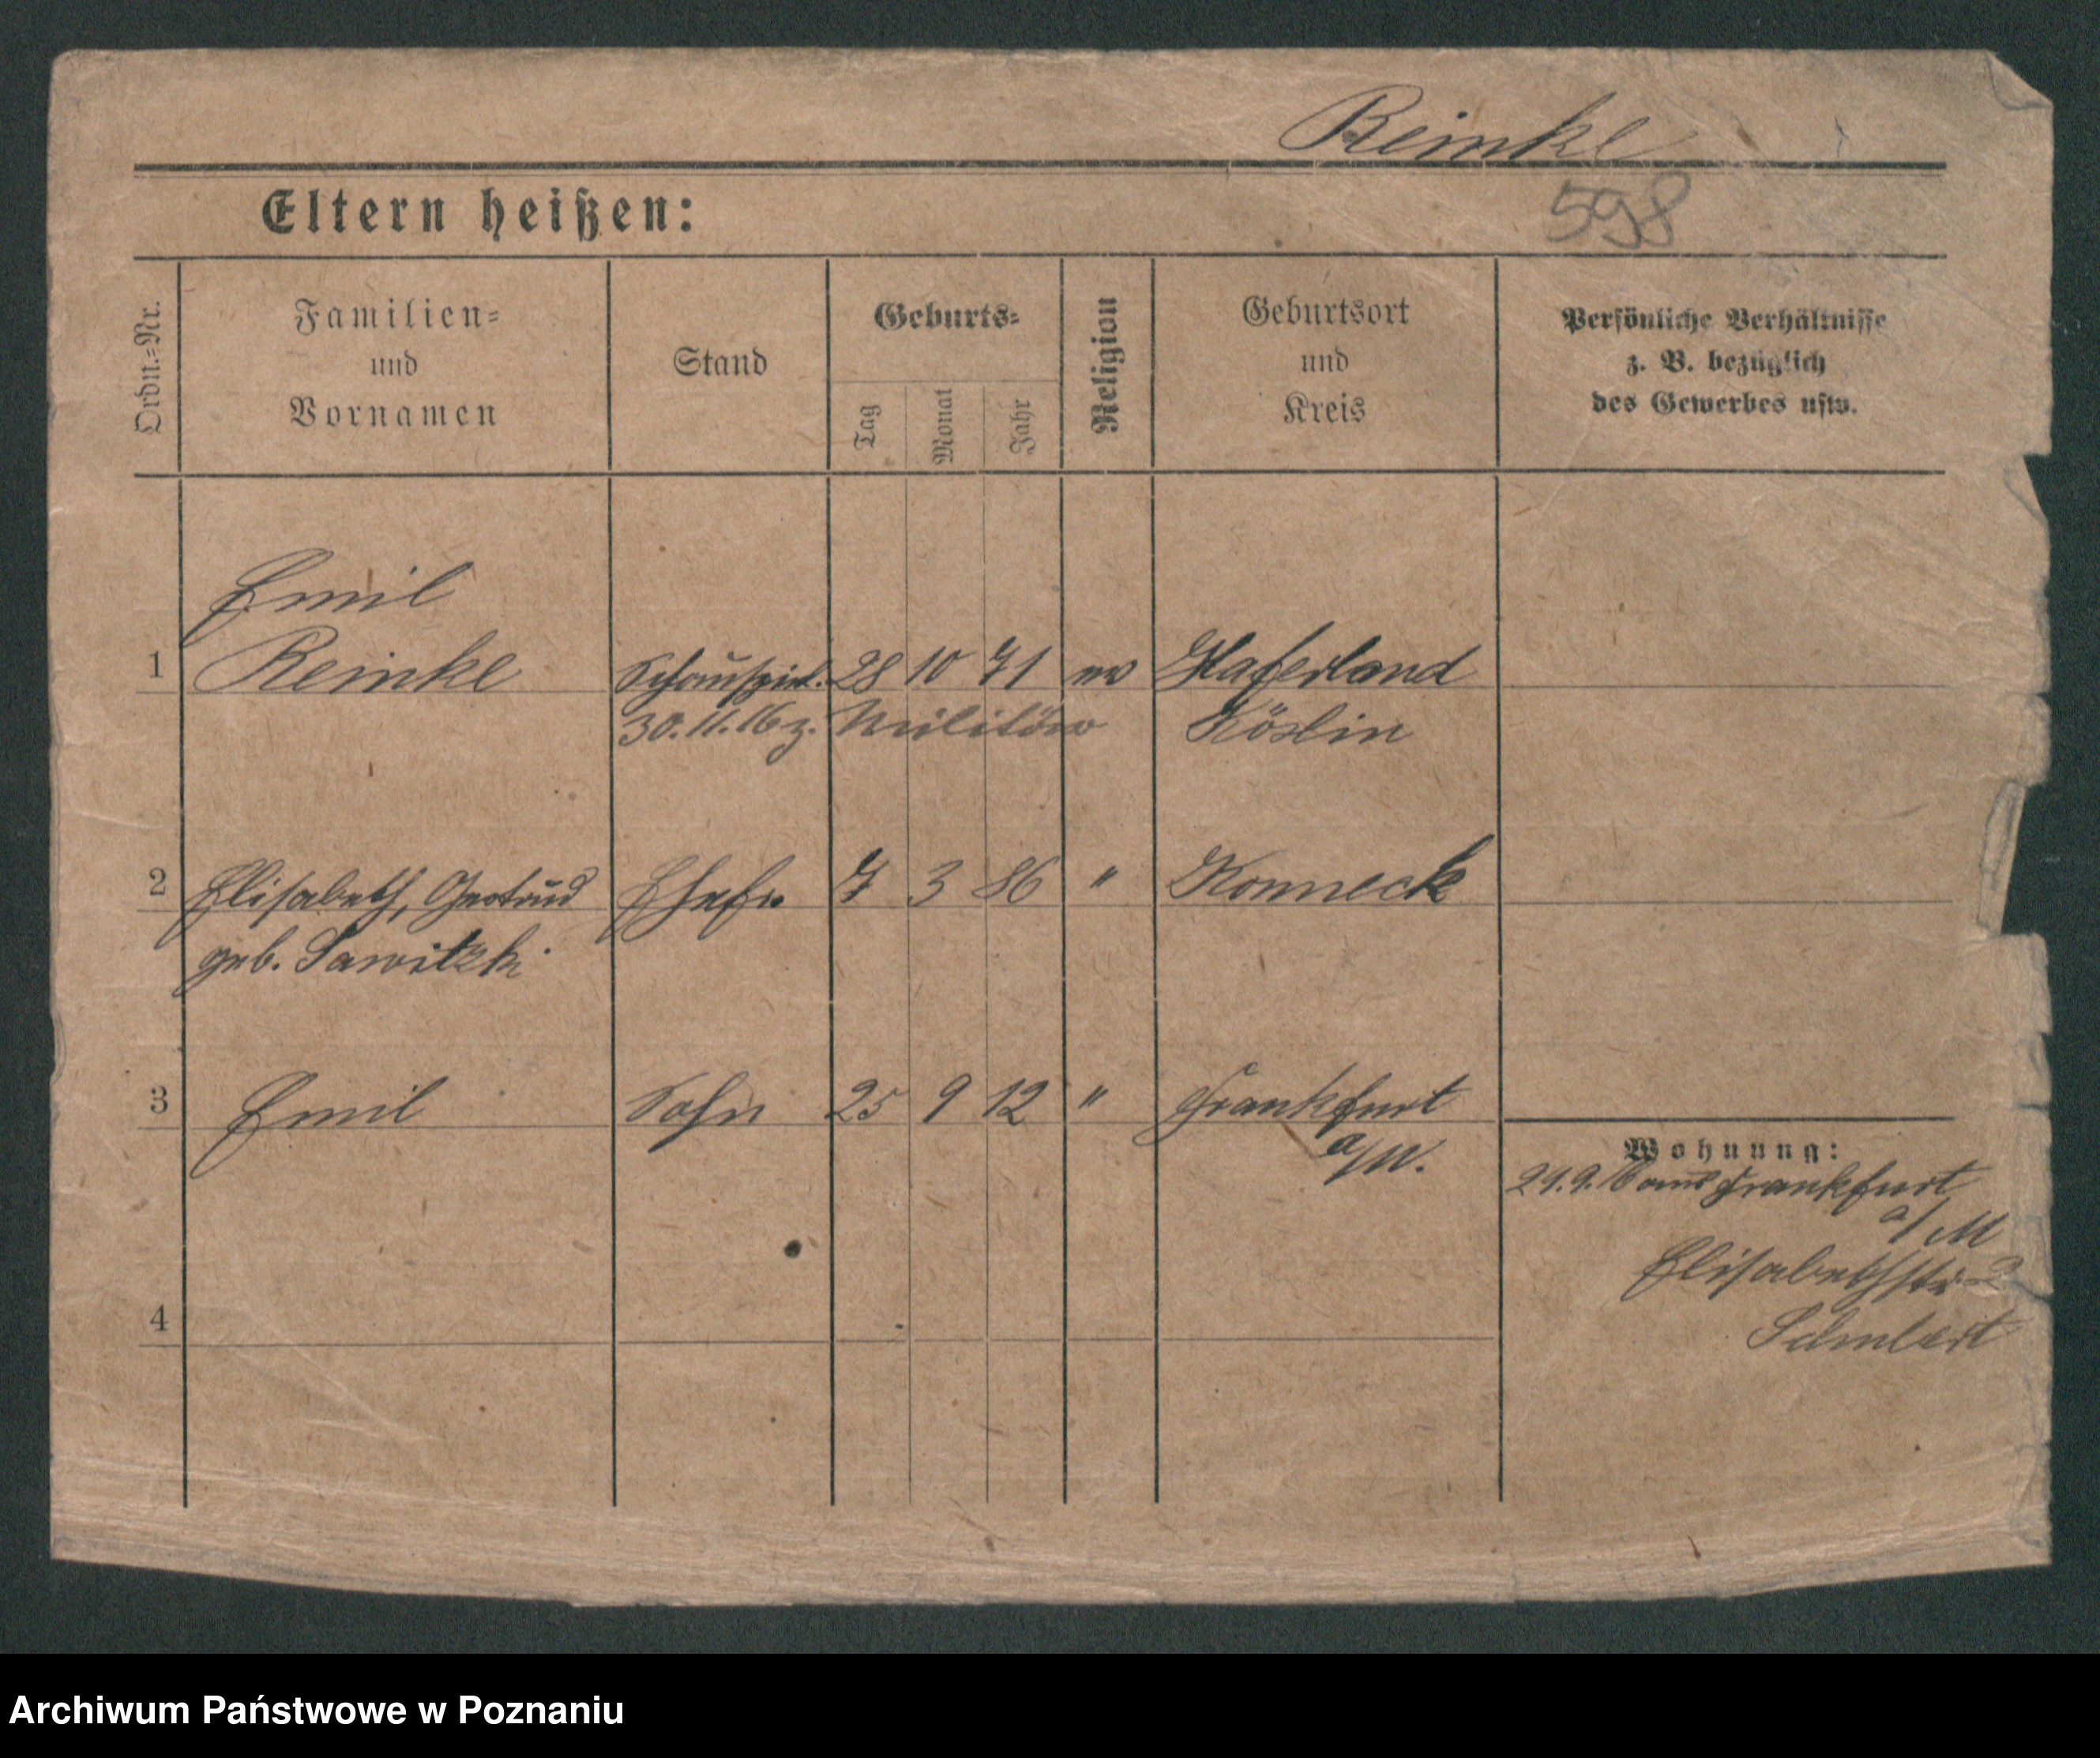 Reinke
Eltern heißen:
598
Ordn.-Nr.
Familien-
und
Vornamen
Stand
Geburts-
Tag
Monat
Jahr
Religion
Geburtsort
und
Kreis
Persönliche Verhältnisse
z. B. bezüglich
des Gewerbes usw.
Emil
1 Reinke Schauspiel. 28 10 71 Haferland
30.11.16 z. Militär Köslin
2 Elisabeth, Gertrud Ehefr. 7 3 86 " Konneck
geb. Sawitzki
3 Emil Sohn 25 9 12 " Frankfurt
a/M.
Wohnung:
29.9.16 aus Frankfurt
a/M
Elisabethstr
Schubert
4
Archiwum Państwowe w Poznaniu